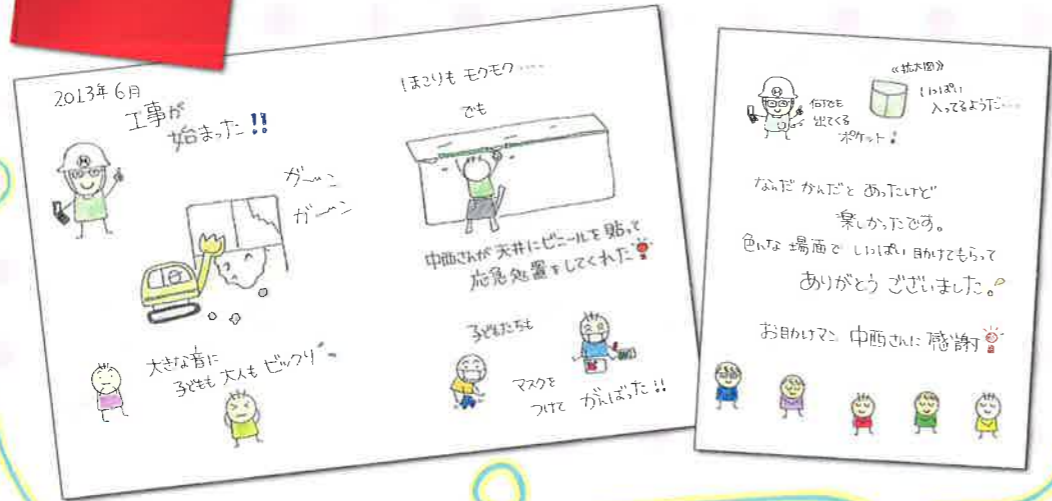 2013年6月
工事が
始まった!!
ガーン
ガーン
大きな音に
子どもも 大人も ビックリ
ほこりも モクモク....
でも
中西さんが 天井にビニールを貼って
応急処置をしてくれた
子どもたちも
マスクを
つけて がんばった!!
何でも
出てくる
ポケット!
《拡大図》
いっぱい
入ってるようだ...
なんだ かんだと あったけど
楽しかったです。
色んな 場面で いっぱい 助けてもらって
ありがとう ございました。
お助けマン 中西さんに 感謝